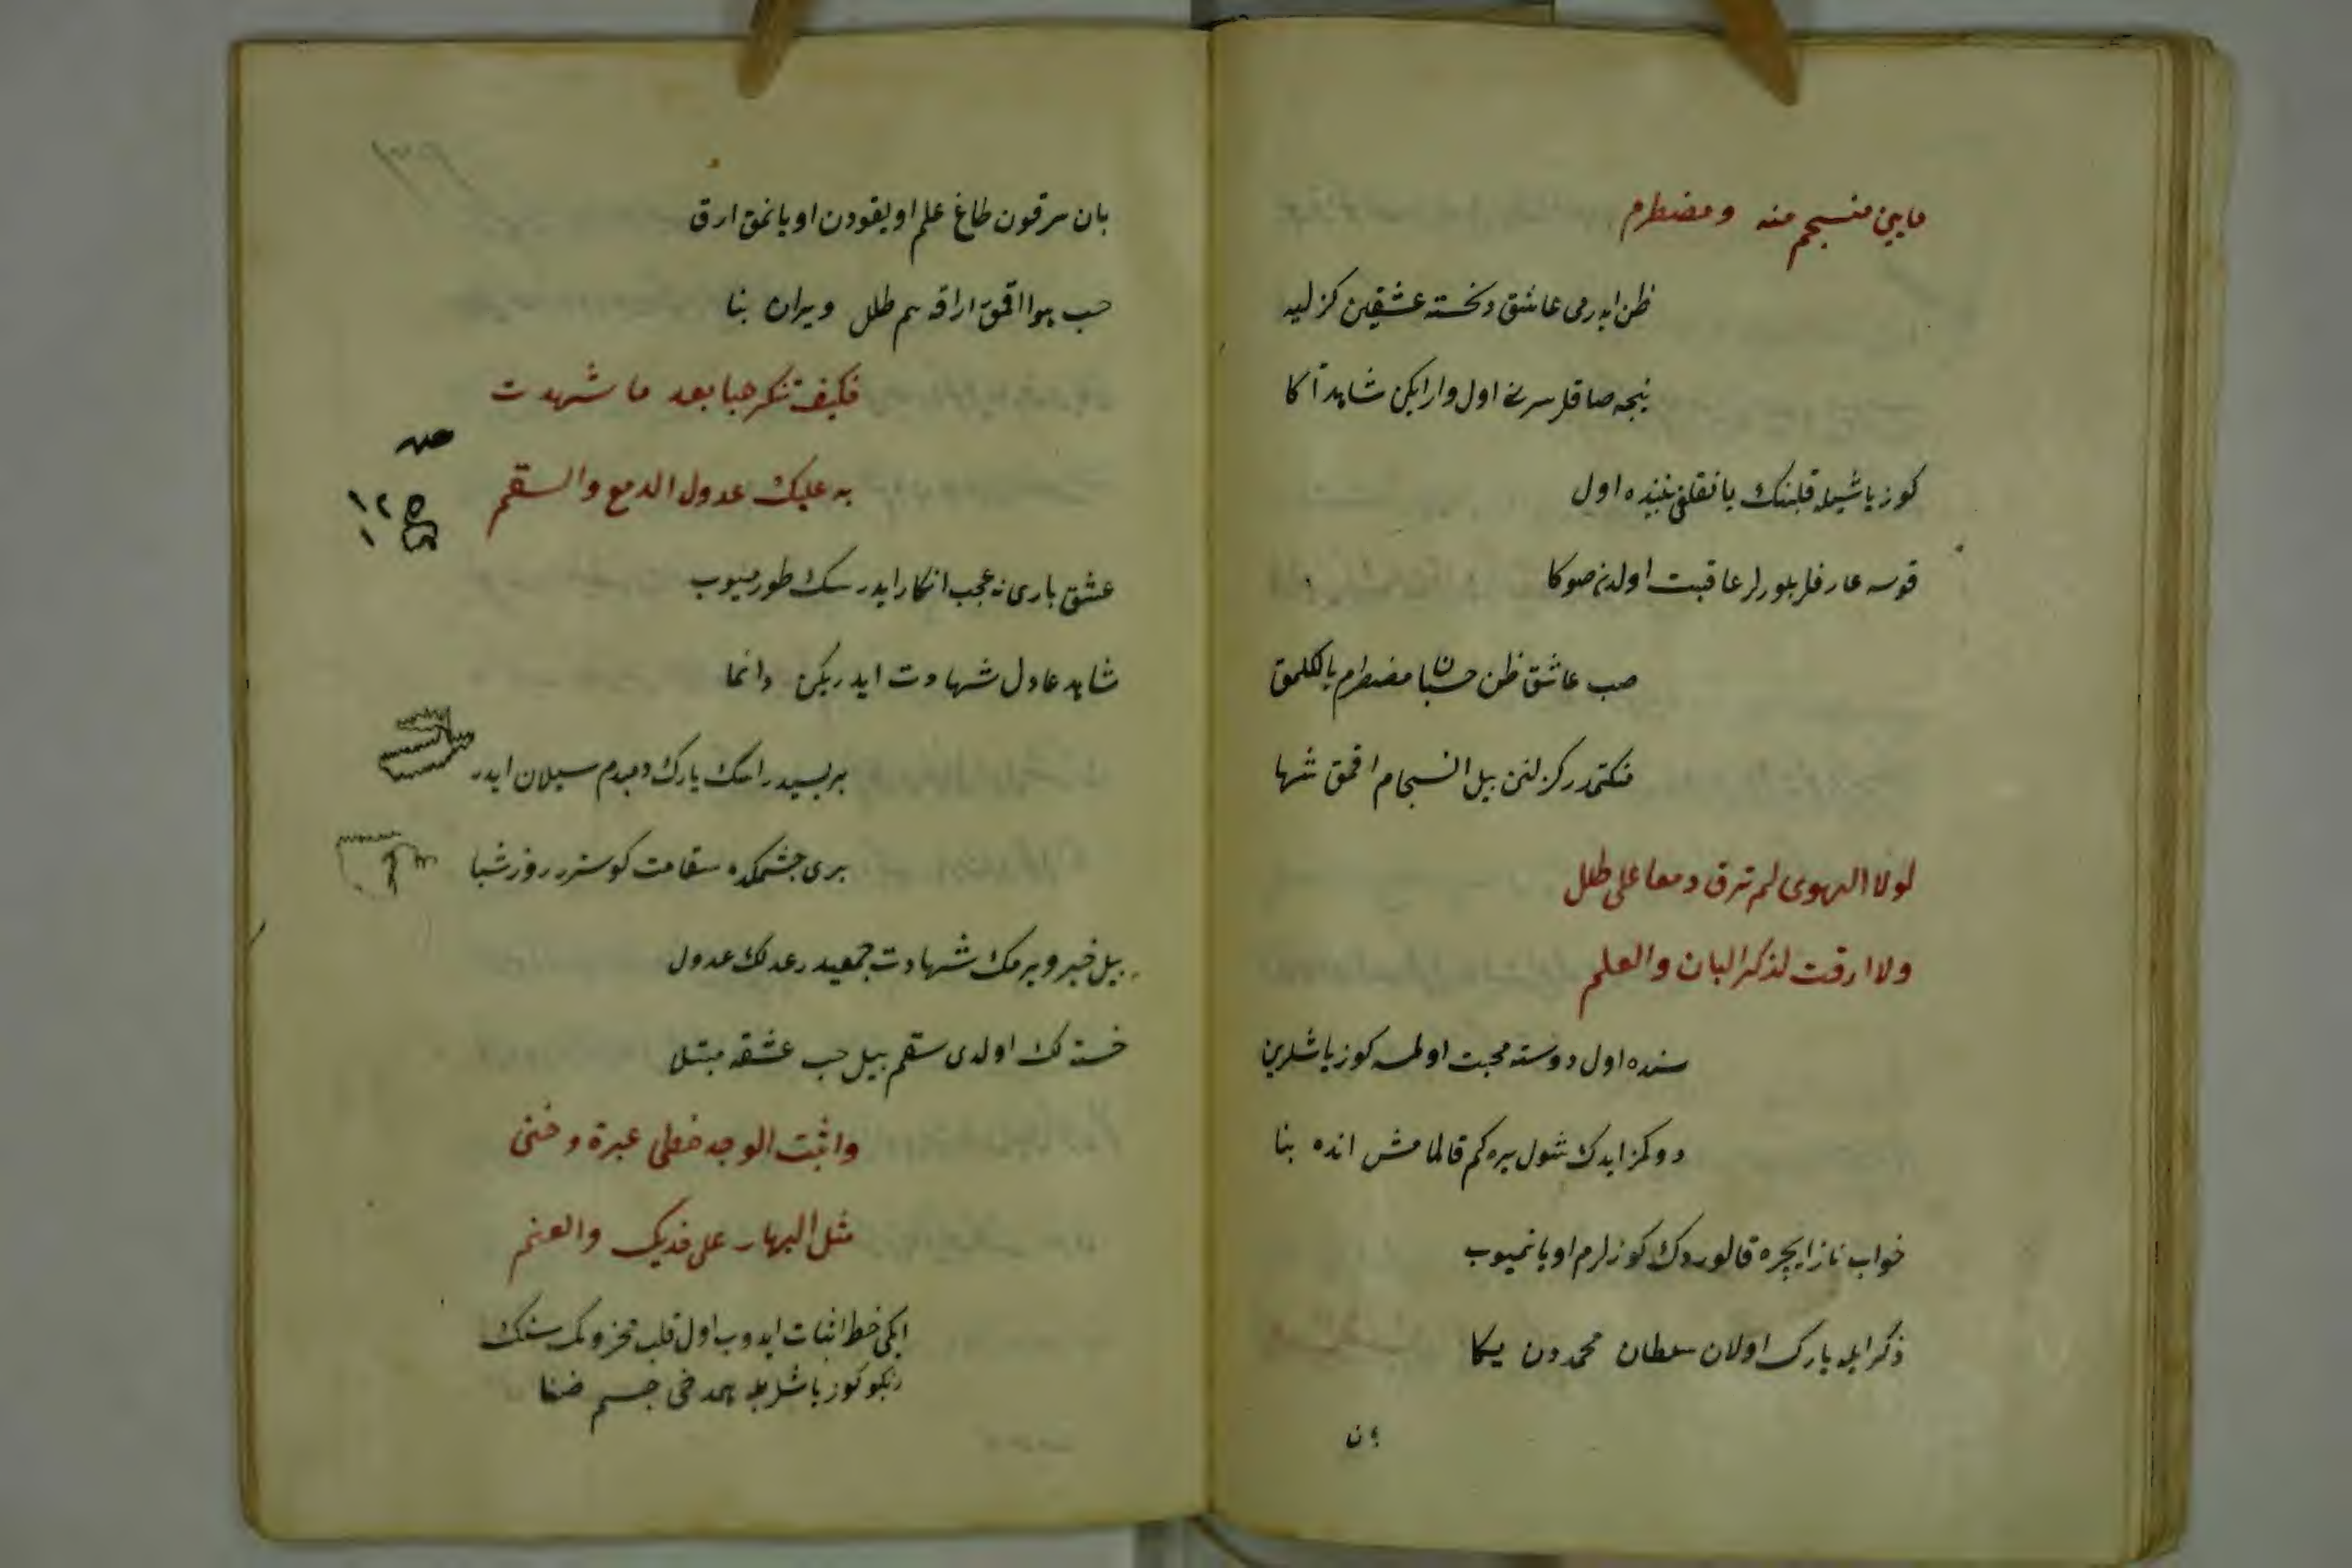 ما بين منسجم منه ومضطرم
ظن ايدرمى عاشق دلخسته عشقين كزليه
نيجه صاقلر سرنى اول وار ايكن شاهد آكا
كوز ياشيله قلبنك يانقلغى بنده اول
قوسه عارفلر بلورلر عاقبت اولدن صوكا
صب عاشق ظن حسبان مضطرم يالكلمق
منكتمدر كزلنن بيل انسجام اقمق شها
لولا الهوى لم ترق دمعا على طلل
ولا ارقت لذكر البان والعلم
سنده اول دوسته محبت اولمسه كوز ياشلرين
دوكمز ايدك شول يره كم قالمامش انده بنا
خواب ناز ايچره قالوردك كوزلرم اويانميوب
ذكر ايله يارك اولان سلطان محمددن يكا
بان
بان سرقون طاغ علم اويقودن اويانمق ارق
حب هوا اقمق اراقه هم طلل ويران بنا
فكيف تنكر حبا بعد ما شهدت
به عليك عدول الدمع والسقم
عشق يارى نه عجب انكار ايدرسك طورميوب
شاهد عادل شهادت ايدريكن دائما
بريسيدر اشك يارك دمبدم سيلان ايدر
برى جشمكده سقامت كوسترر روز شبا
بيل خبر ويرمك شهادت جمعيدر عدلك عدول
خسته لك اولدى سقم بيل حب عشقه مبتلا
واثبت الوجد خطى عبرة وضنى
مثل البهار على خديك والعنم
ايكى خط اثبات ايدوب اول قلب محزونك سنك
رنكو كوز ياشلريله هم دخى جسم ضنا